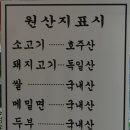 원산지표시
소고기 ······ 호주산
돼지고기 ···· 독일산
쌀 ········ 국내산
메밀면 ····· 국내산
두부 ······ 국내산